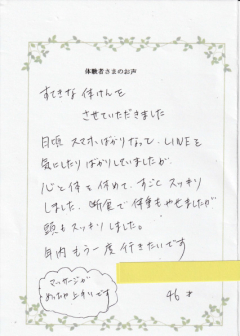 体験者さまのお声
すてきな体けんを
させていただきました
日頃スマホばかりなって、LINEを
気にしたりばかりしていましたが
心と体を休めて、すごくスッキリ
しました。断食で体重もやせましたが
頭もスッキリしました。
年内もう一度行きたいです
マッサージが
めっちゃ上手いです
46才